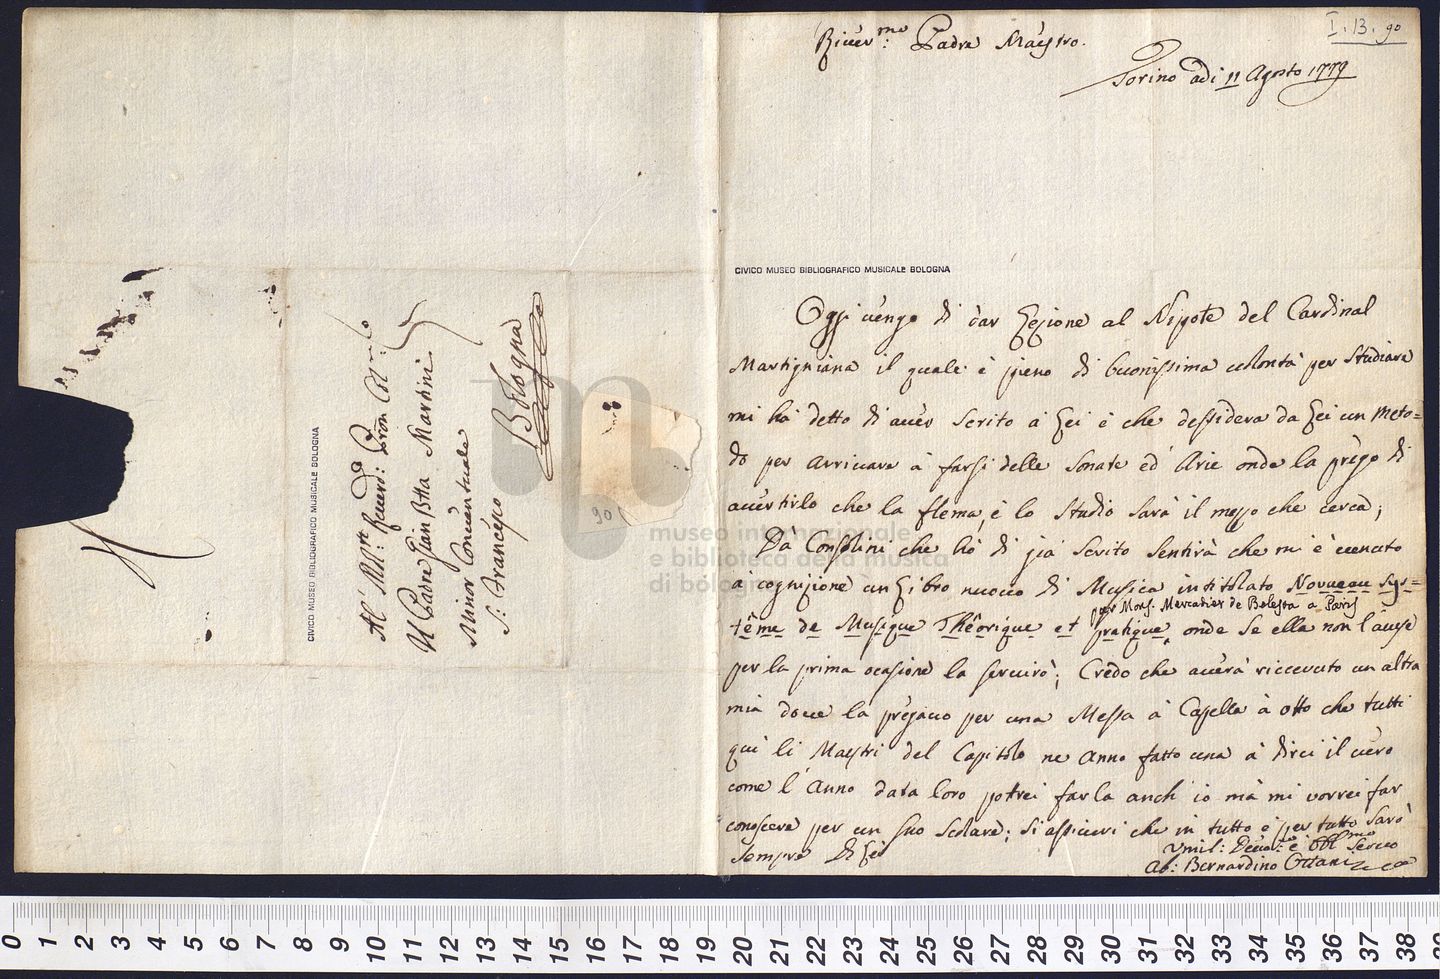 I. 13. 90
River.mo Padre Maestro.
Torino adi 11 Agosto 1779
CIVICO MUSEO BIBLIOGRAFICO MUSICALE BOLOGNA
Oggi vengo di dar Lezione al Nipote del Cardinal
Martigniana il quale è pieno di buonissima volontà per studiare
mi hà detto di aver scrito à Lei è che dessidera da Lei un Meto=
do per arrivare à farsi delle Sonate ed Arie onde la prègo di
avertirlo che la flema, è lo studio sarà il mezzo che cerca;
Dà Consolini che hò di già scrito sentirà che mi è venuto
a cognizione un Libro nuovo di Musica intitolato Novueau sys=
per Mons. Mercadier de Belesta a Paris
tême de Musique Thêorique et pratique, onde se ella non l'avese
per la prima ocasione la servirò; Credo che averà riccevuto un altra
mia dove la prègavo per una Messa à Capella à otto che tutti
quì li Maestri del Capitolo ne anno fatto una à dirci il vero
come l'Anno data loro potrei farla anch io mà mi vorrei far
conoscere per un suo scolare; si assicuri che in tutto è per tutto sarò
sempre Di Lei
Vmil: Devo:mo è Obl:mo Servo
Ab: Bernardino Ottani
Al Mlt. Revd: Pron Col.mo
Il Padre Gian Btta Martini
Minor Conventuale
S: Francesco
Bologna
CIVICO MUSEO BIBLIOGRAFICO MUSICALE BOLOGNA
90
museo internazionale
e biblioteca della musica
di bologna
0 1 2 3 4 5 6 7 8 9 10 11 12 13 14 15 16 17 18 19 20 21 22 23 24 25 26 27 28 29 30 31 32 33 34 35 36 37 38